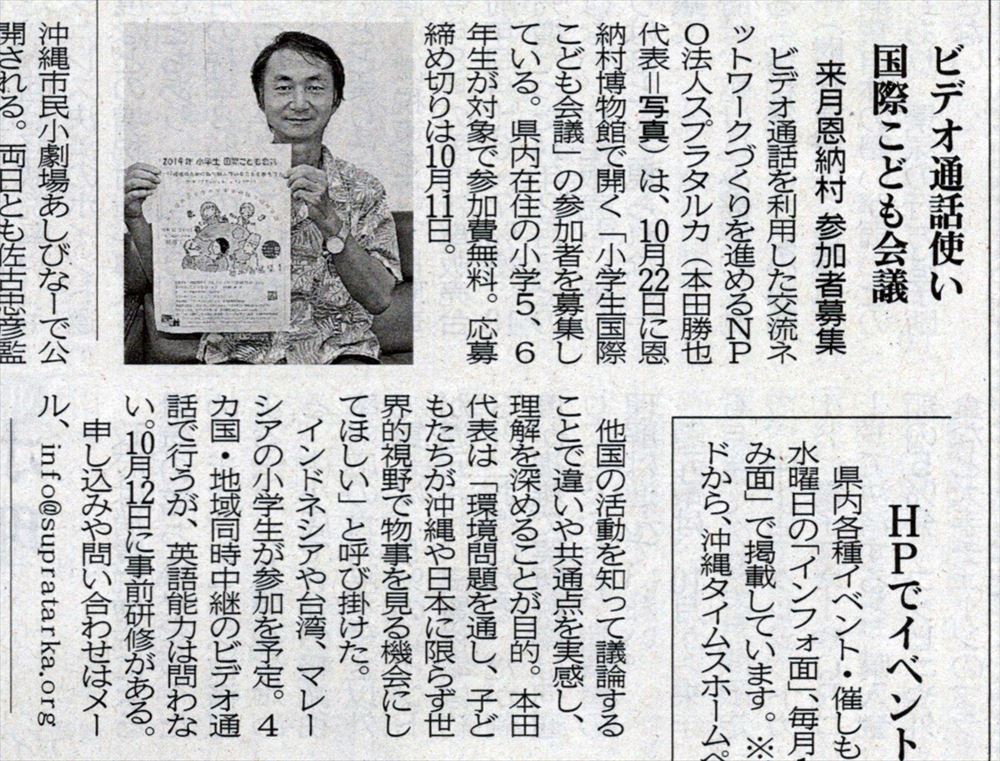 ビデオ通話使い
国際こども会議
来月恩納村 参加者募集
ビデオ通話を利用した交流ネ
ットワークづくりを進めるNP
O法人スプラタルカ（本田勝也
代表＝写真）は、10月22日に恩
納村博物館で開く「小学生国際
こども会議」の参加者を募集し
ている。県内在住の小学5、6
年生が対象で参加費無料。応募
締め切りは10月11日。
2019年 小学生 国際こども会議
他国の活動を知って議論する
ことで違いや共通点を実感し、
理解を深めることが目的。本田
代表は「環境問題を通し、子ど
もたちが沖縄や日本に限らず世
界的視野で物事を見る機会にし
てほしい」と呼び掛けた。
インドネシアや台湾、マレー
シアの小学生が参加を予定。4
カ国・地域同時中継のビデオ通
話で行うが、英語能力は問わな
い。10月12日に事前研修がある。
申し込みや問い合わせはメー
ル、info@supratarka.org
沖縄市民小劇場あしびなーで公
開される。両日とも佐古忠彦監
HPでイベント
県内各種イベント・催しも
水曜日の「インフォ面」、毎月
み面」で掲載しています。※
ドから、沖縄タイムスホームペ